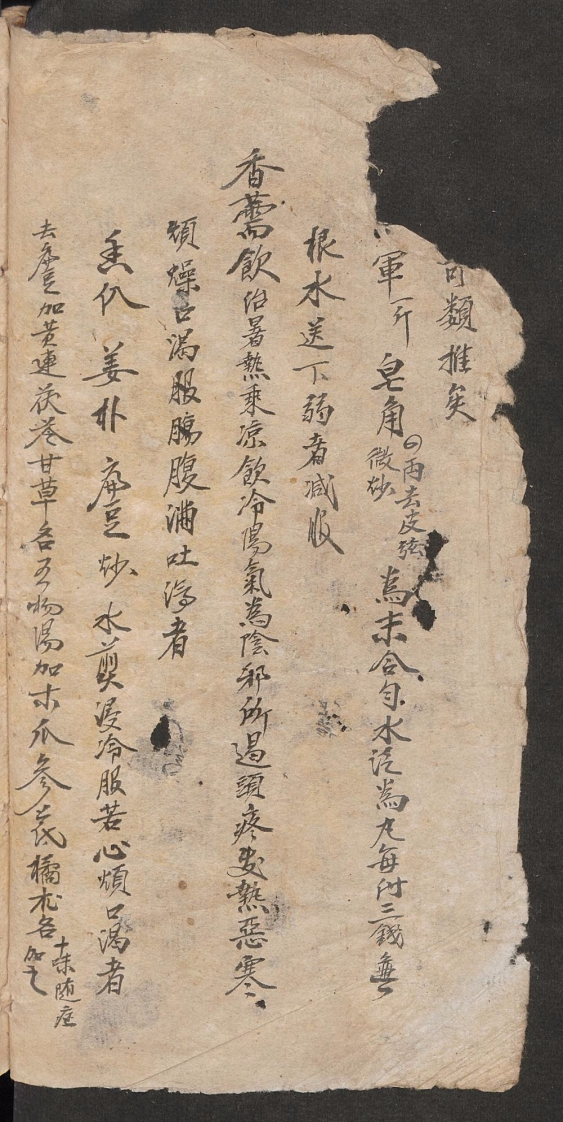 可類推矣
軍一斤 皂角四両去皮弦微炒 為末合勻水泛為丸每付三錢無
根水送下弱者减服
香薷飲治暑熱乘凉飲冷陽氣為陰邪所遏頭疼發熱惡寒
煩燥口渴服腸腹滿吐瀉者
姜朴 扁豆炒 水煎浸冷服若心煩口渴者
去扁豆加黄連茯苓甘草名五物湯加木瓜參芪橘朮名十味随症加之